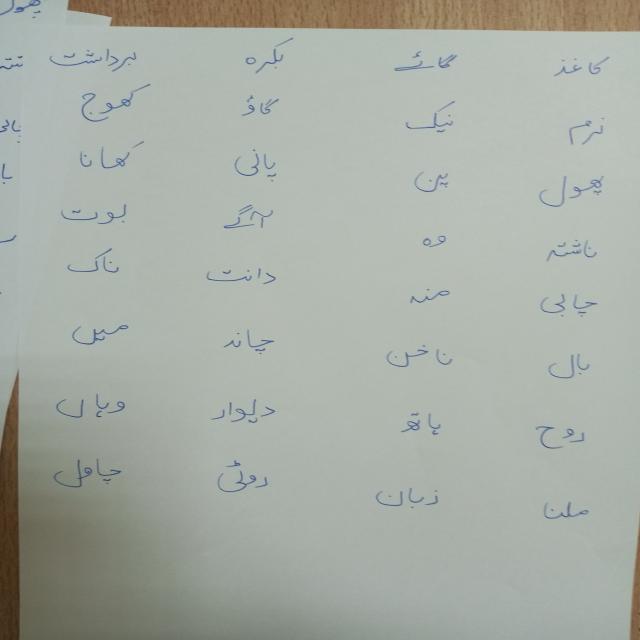 کاغذ گائے بکرہ برداشت
نرم نیک گاؤ کھوج
پھول پن پانی کھانا
ناشتہ وہ آگے بوت
چابی منہ دانت ناک
بال ناخن چاند میں
روح ہاتھ دیوار وہاں
ملنا زبان روٹی چاول